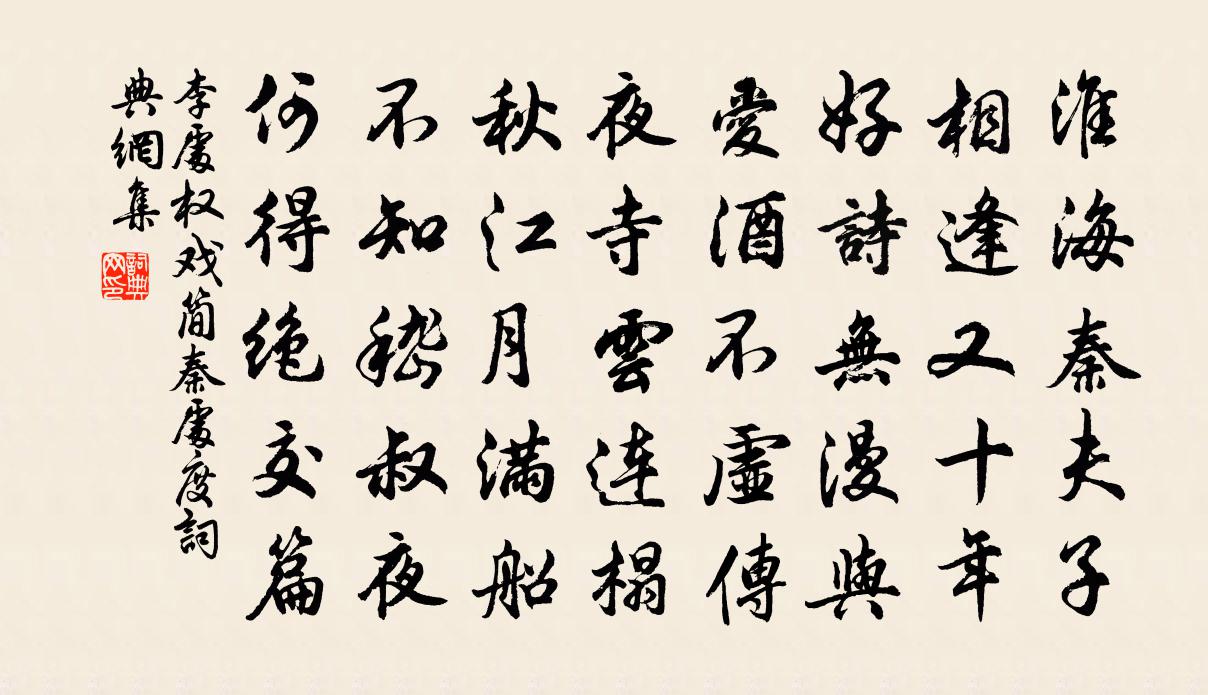 淮海秦夫子
相逢又十年
好詩無漫與
愛酒不虛傳
夜寺雲連榻
秋江月滿船
不知嵇叔夜
何得绝交篇
李處权戏简秦處度詞
典網集
詞典
网印